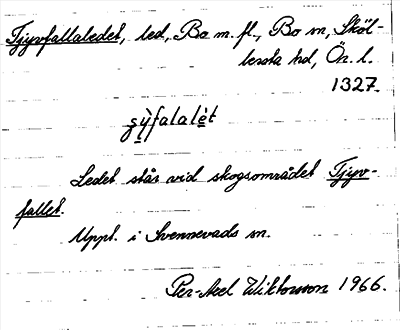 Tjyvfallaledet, led, Bo m. fl., Bo sn, Sköl-
lersta hd, Ör. l.
1327.
sỳ̱falalè̱t
Ledet står vid skogsområdet Tjyv-
fallet.
Uppt. i Svennevads sn.
Per-Axel Wiktorsson 1966.